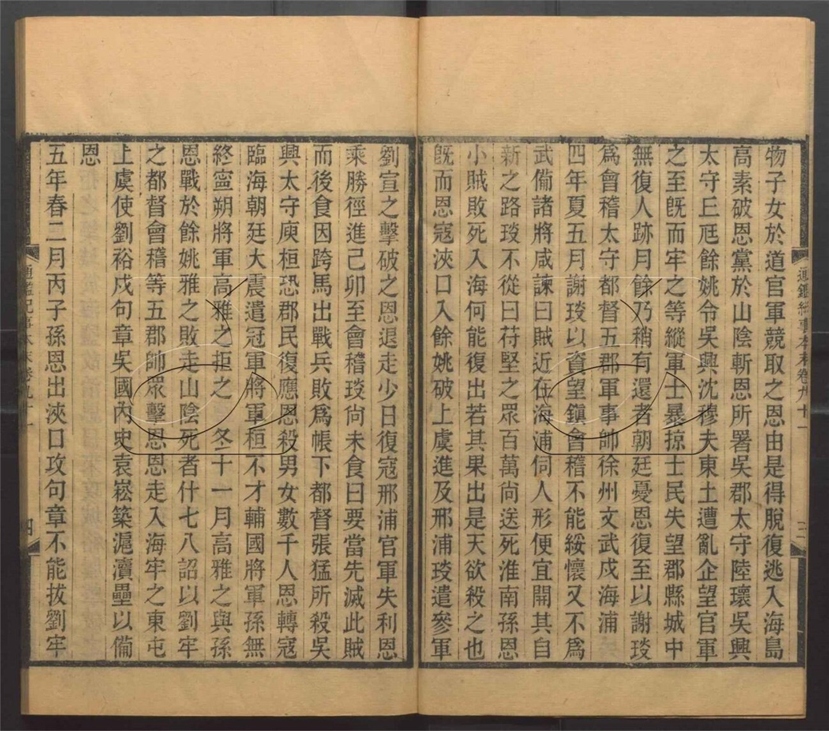 物子女於道官軍競取之恩由是得脫復逃入海島
高素破恩黨於山陰斬恩所署吳郡太守陸瓌吳興
太守丘尫餘姚令吳興沈穆夫東土遭亂企望官軍
之至旣而牢之等縱軍士暴掠士民失望郡縣城中
無復人跡月餘乃稍有還者朝廷憂恩復至以謝琰
爲會稽太守都督五郡軍事帥徐州文武戍海浦
四年夏五月謝琰以資望鎮會稽不能綏懷又不爲
武備諸將咸諫曰賊近在海浦伺人形便宜開其自
新之路琰不從曰苻堅之眾百萬尙送死淮南孫恩
小賊敗死入海何能復出若其果出是天欲殺之也
旣而恩寇浹口入餘姚破上虞進及邢浦琰遣參軍
通鑑紀事本末卷九十一
三
劉宣之擊破之恩退走少日復寇邢浦官軍失利恩
乘勝徑進己卯至會稽琰尙未食曰要當先滅此賊
而後食因跨馬出戰兵敗爲帳下都督張猛所殺吳
興太守庾桓恐郡民復應恩殺男女數千人恩轉寇
臨海朝廷大震遣冠軍將軍桓不才輔國將軍孫無
終寧朔將軍高雅之拒之 冬十一月高雅之與孫
恩戰於餘姚雅之敗走山陰死者什七八詔以劉牢
之都督會稽等五郡帥眾擊恩恩走入海牢之東屯
上虞使劉裕戍句章吳國內史袁崧築滬瀆壘以備
恩
五年春二月丙子孫恩出浹口攻句章不能拔劉牢
通鑑紀事本末卷九十一
四